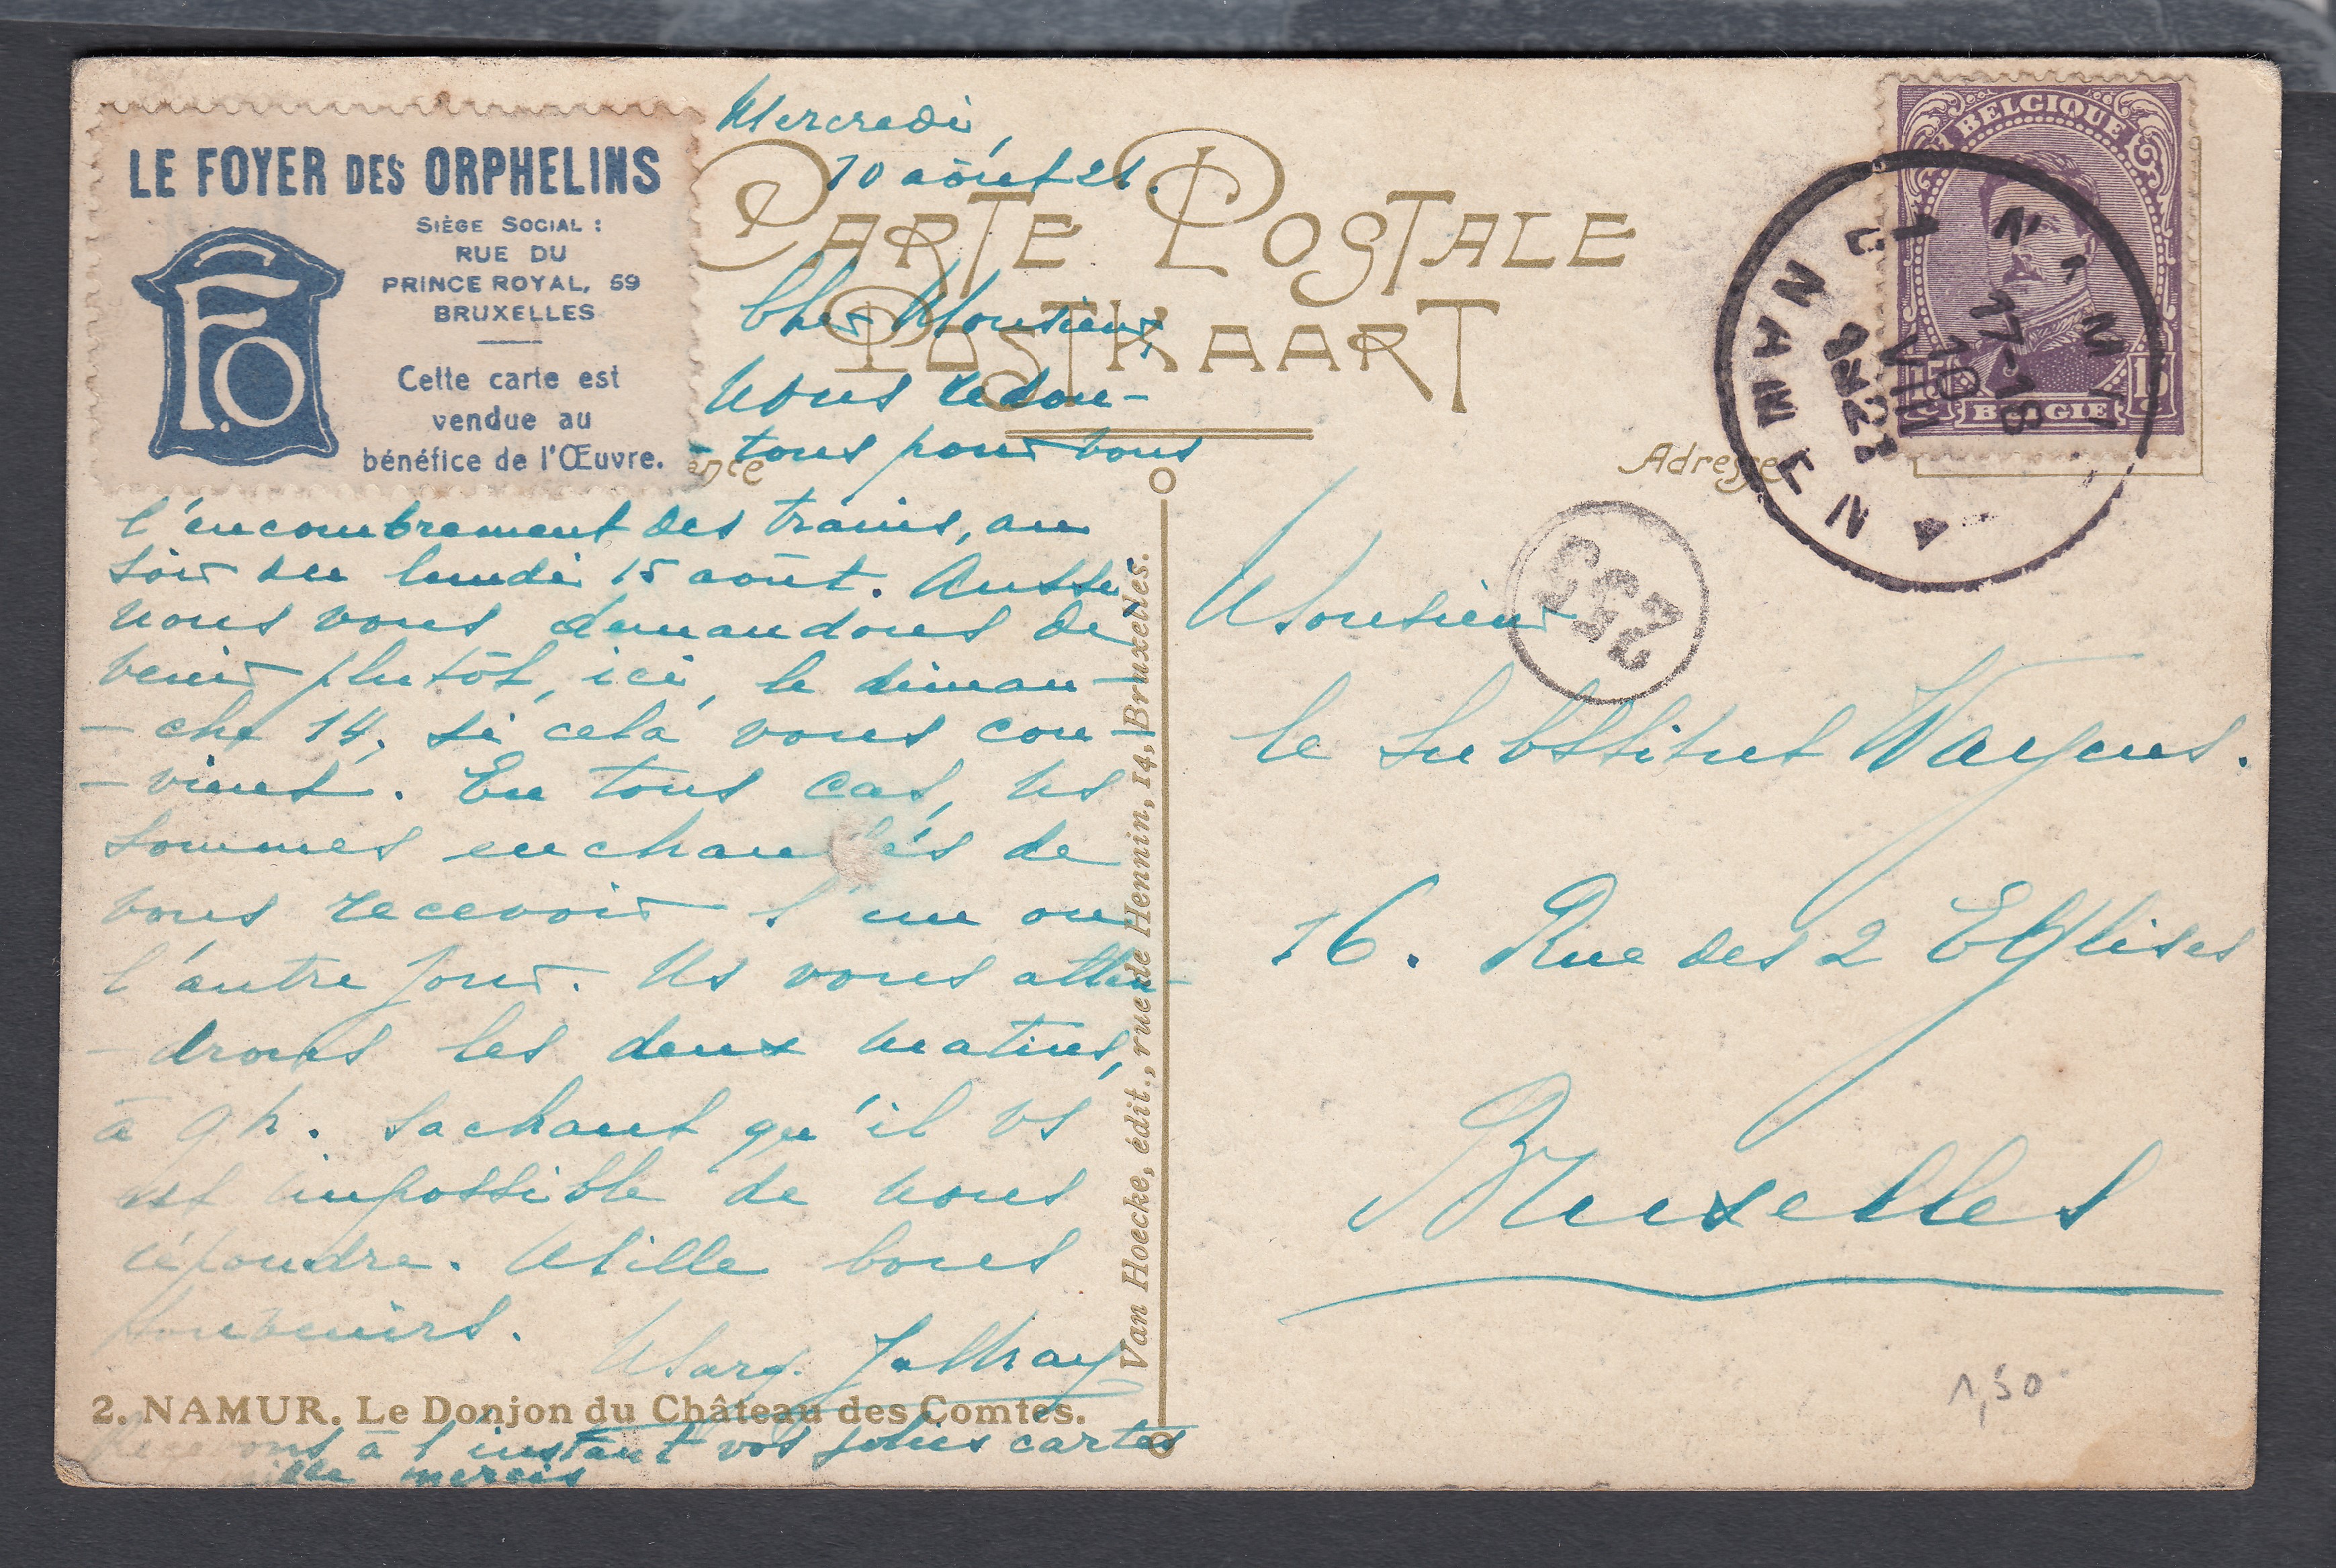 LE FOYER DES ORPHELINS
SIÈGE SOCIAL :
RUE DU
PRINCE ROYAL, 59
BRUXELLES
Cette carte est
vendue au
bénéfice de l'Œuvre.
FO
Mercredi,
10 août 21.
CARTE POSTALE
POSTKAART
ence
Adresse
BELGIQUE
15 BELGIË 15
NAMUR
NAMEN
17-18
10
VIII
1921
253
Cher Monsieur,
Nous redou-
-tons pour vous
l'encombrement des trains, au
soir du lundi 15 août. Aussi
nous vous demandons de
venir plutôt, ici, le diman-
-che 14, si cela vous con-
-vient. En tous cas, ns
sommes enchantés de
vous recevoir l'un ou
l'autre jour. Ns vous atten-
-drons les deux matins,
à 9 h. sachant qu'il vs
est impossible de nous
répondre. Mille bons
souvenirs.
Marg.
2. NAMUR. Le Donjon du Château des Comtes.
Recevons à l'instant vos jolies cartes
mille mercis
Van Hoecke, édit., rue de Hennin, 14, Bruxelles.
Monsieur
le Substitut
16. Rue des 2 Eglises
Bruxelles
1,50